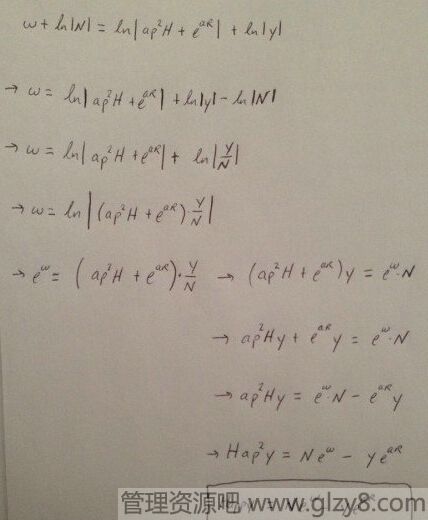 w + ln|N| = ln|ap²H + e^{aR}| + ln|y|
→ w = ln|ap²H + e^{aR}| + ln|y| - ln|N|
→ w = ln|ap²H + e^{aR}| + ln|y/N|
→ w = ln|(ap²H + e^{aR})·y/N|
→ e^w = (ap²H + e^{aR})·y/N → (ap²H + e^{aR})y = e^w·N
→ ap²Hy + e^{aR}y = e^w·N
→ ap²Hy = e^w·N - e^{aR}y
→ Hap²y = Ne^w - ye^{aR}
管理资源吧 www.glzy8.com